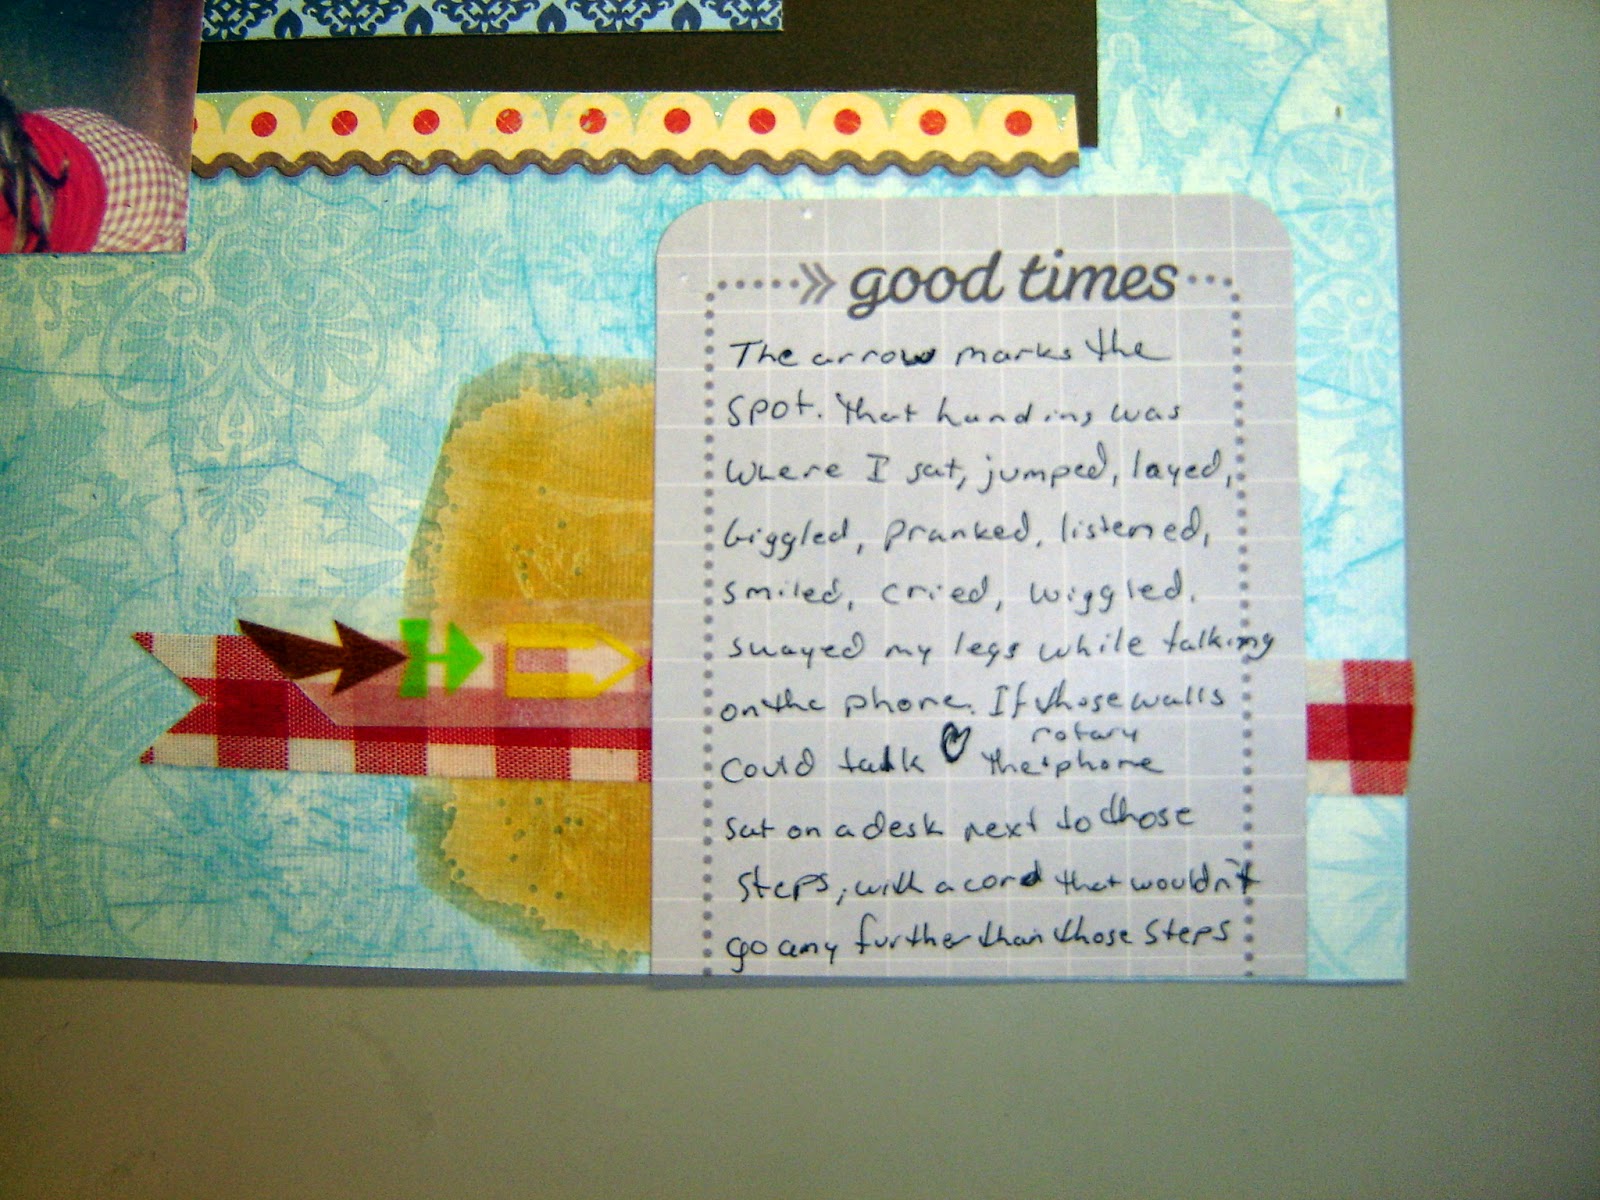 good times
The arrow marks the
spot. That landing was
where I sat, jumped, layed,
giggled, pranked, listened,
smiled, cried, wiggled.
swayed my legs while talking
on the phone. If those walls
could talk ♡ The rotary phone
sat on a desk next to those
steps, with a cord that wouldn't
go any further than those steps